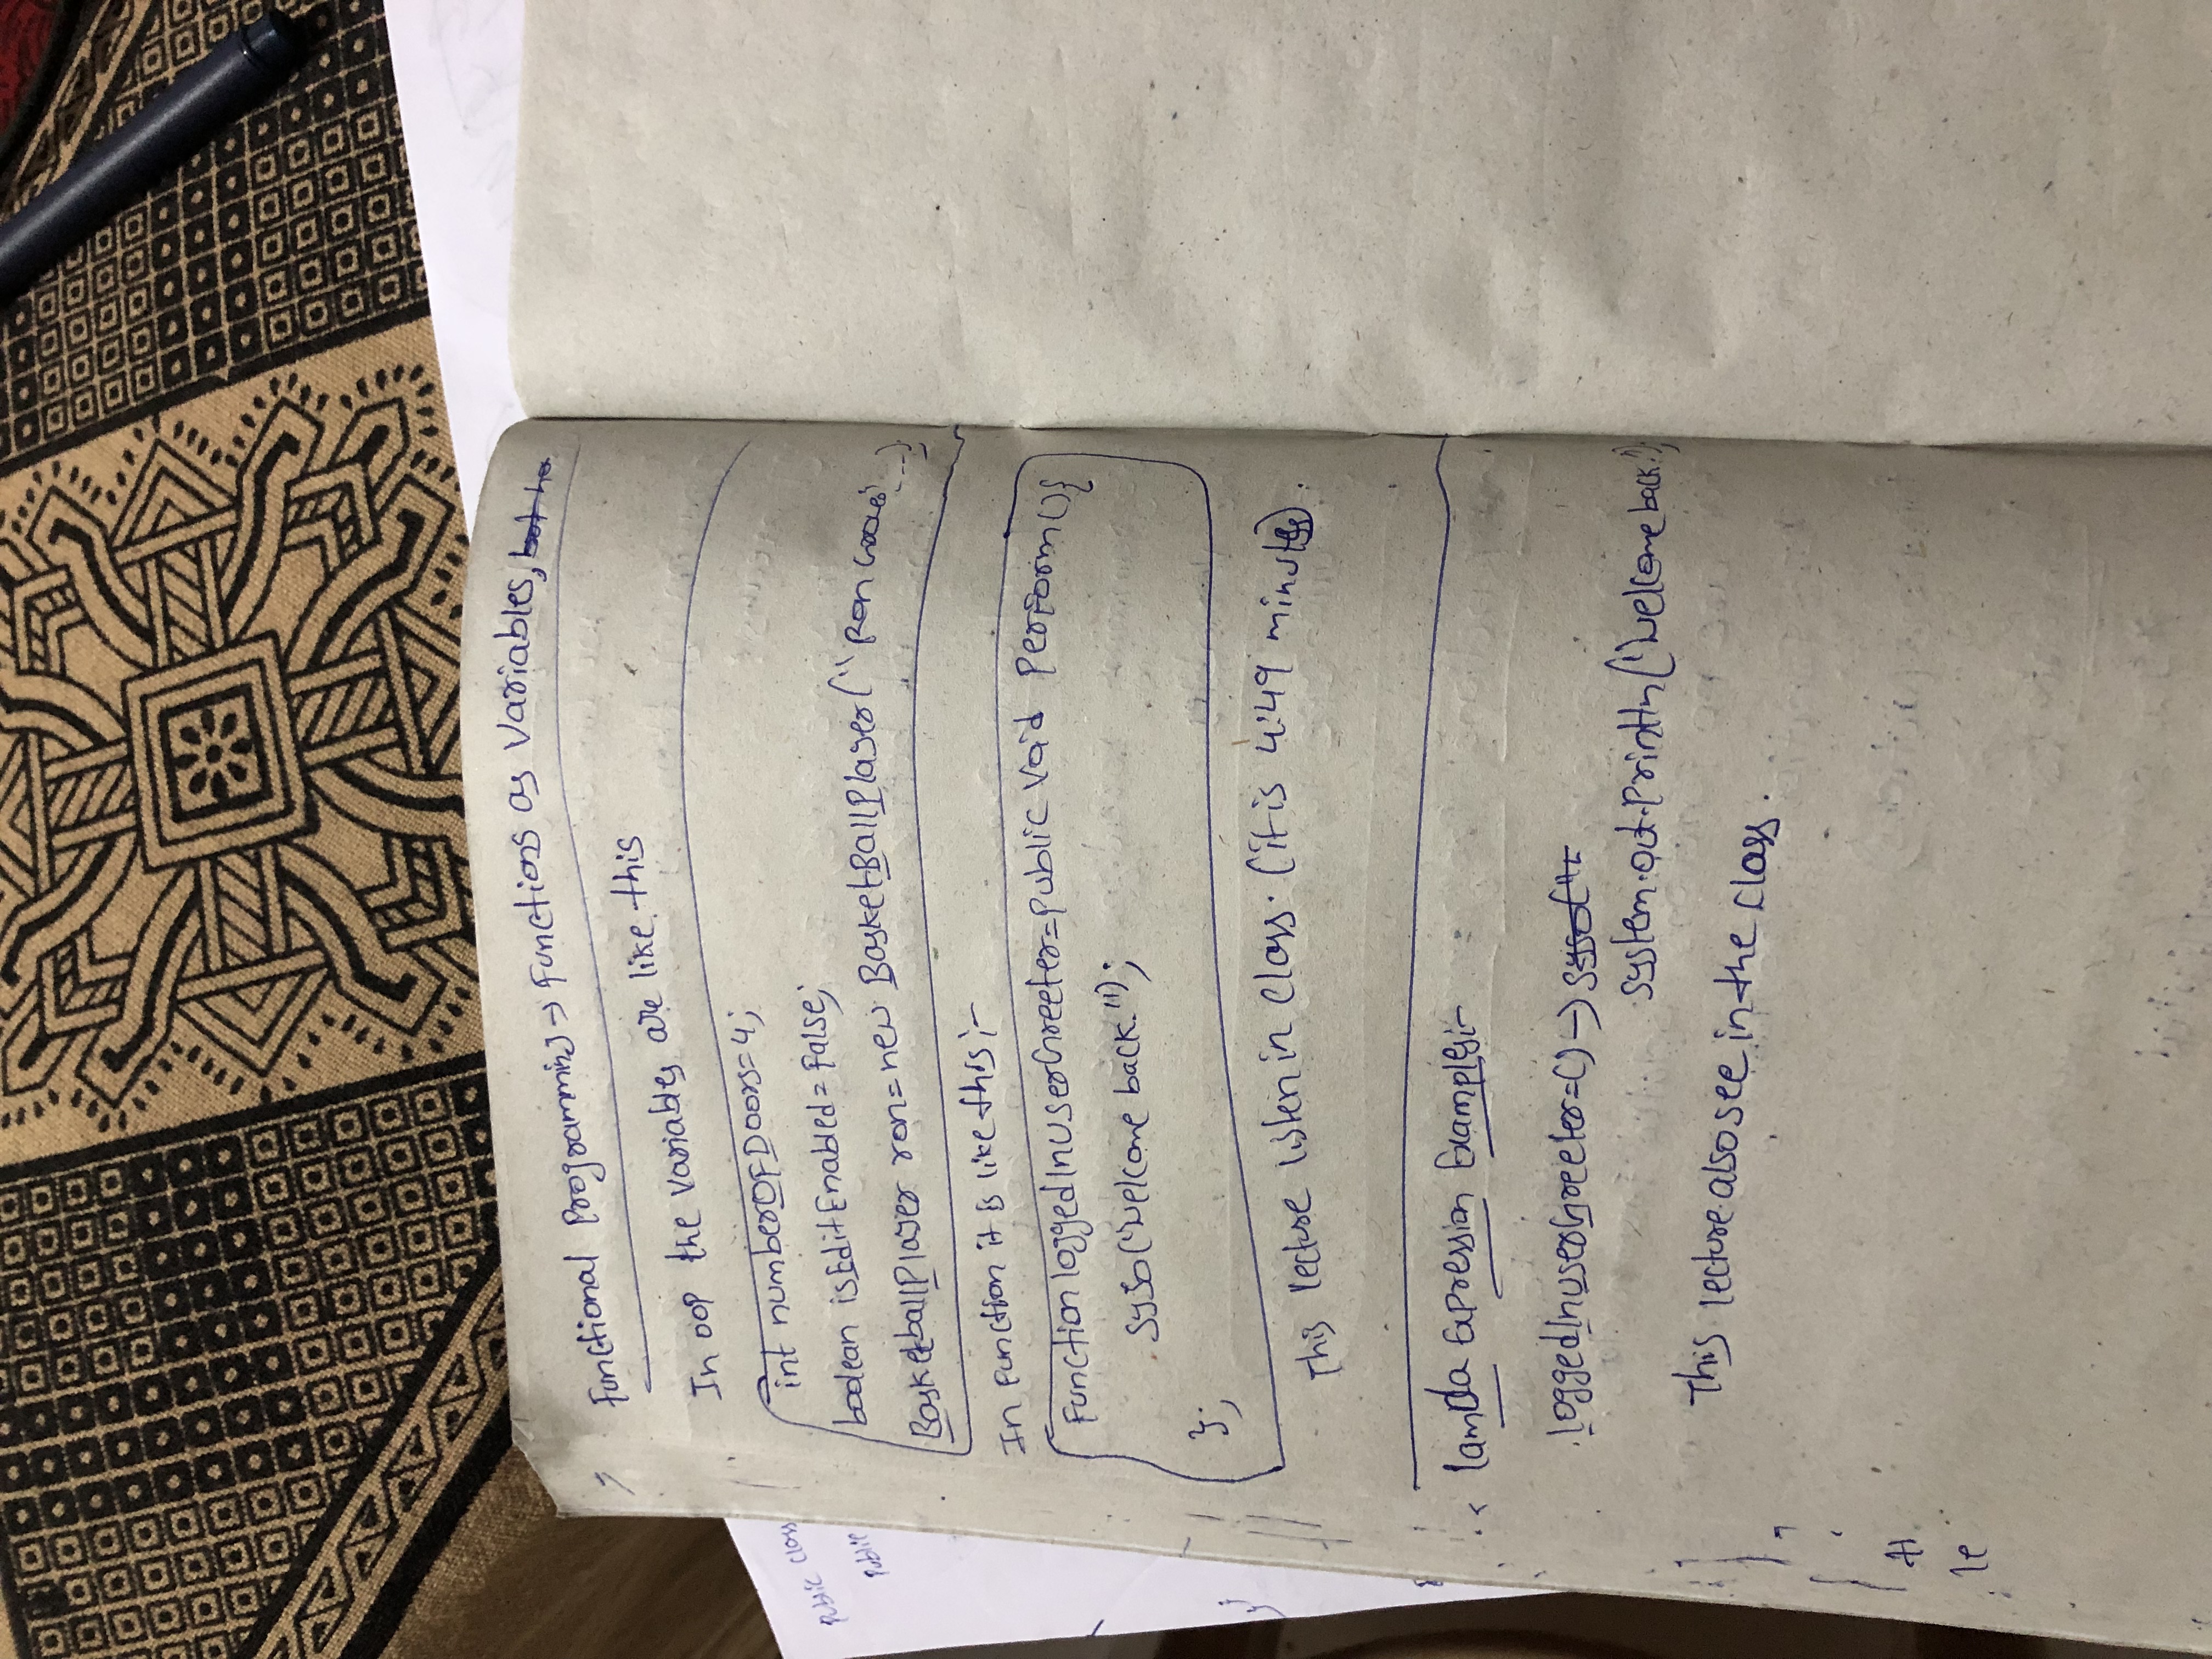 Functional Programming → Functions as Variables, but ho
In OOP the Variables are like this
int numberOFDoors=4;
boolean isEditEnabled = False;
BasketballPlayer ron=new BasketBallPlayer("Ron
In Function it is like this;-
Function loggedInUserGreeter=Public Void Perform(){
syso("Welcome back.");
};
This lecture listen in class. (it is 4:49 minutes).
lamda Expression Examples:-
loggedInuserGreeter=() → syso("
System.out.println("Welcome back.");
This lecture also see in the class.
Public class
Public